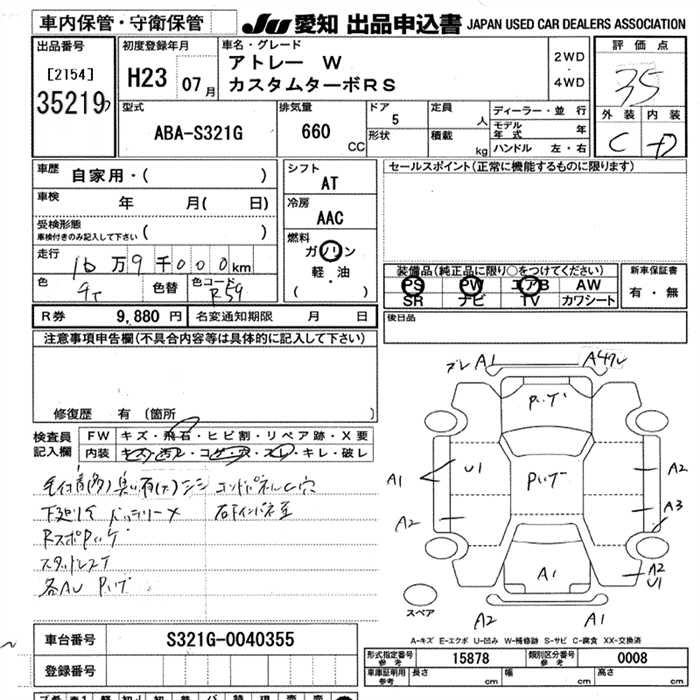 車内保管・守衛保管
JU 愛知 出品申込書 JAPAN USED CAR DEALERS ASSOCIATION
出品番号
[2154]
35219
初度登録年月
H23 07月
車名・グレード
アトレー W
カスタムターボRS
2WD
・
4WD
評価点
35
外装 内装
C D
型式
ABA-S321G
排気量
660
CC
ドア
5
形状
定員
人
積載
kg
ディーラー・並行
モデル年式 年
ハンドル 左・右
車歴
自家用・( )
車検
年 月( 日)
受検形態
車検付きのみ記入して下さい ( )
走行
16万9千000km
色
色替
色コード
R59
シフト
AT
冷房
AAC
燃料
ガソリン
・
軽・油
( )
セールスポイント(正常に機能するものに限ります)
装備品(純正品に限り○をつけてください)
PS PW エアB AW
SR ナビ TV カワシート
新車保証書
有・無
後日品
R券 9,880 円
名変通知期限 月 日
注意事項申告欄(不具合内容等は具体的に記入して下さい)
修復歴 有 (箇所 )
検査員
記入欄
FW キズ・飛石・ヒビ割・リペア跡・X要
内装 キズ・汚レ・コゲ・穴・スレ・キレ・破レ
下廻りサ バッテリーメ
RスポPハゲ
スタッドレス
各AU Pハゲ
A1
Pハゲ
U1
Pハゲ
A1
A2
A2
A3
A1
A2
U1
スペア
A2
A1
A-キズ E-エクボ U-凹み W-補修跡 S-サビ C-腐食 XX-交換済
車台番号 S321G-0040355
登録番号
形式指定番号
参考
15878
類別区分番号
参考
0008
車庫証明用
参考
長さ cm
幅 cm
高さ cm